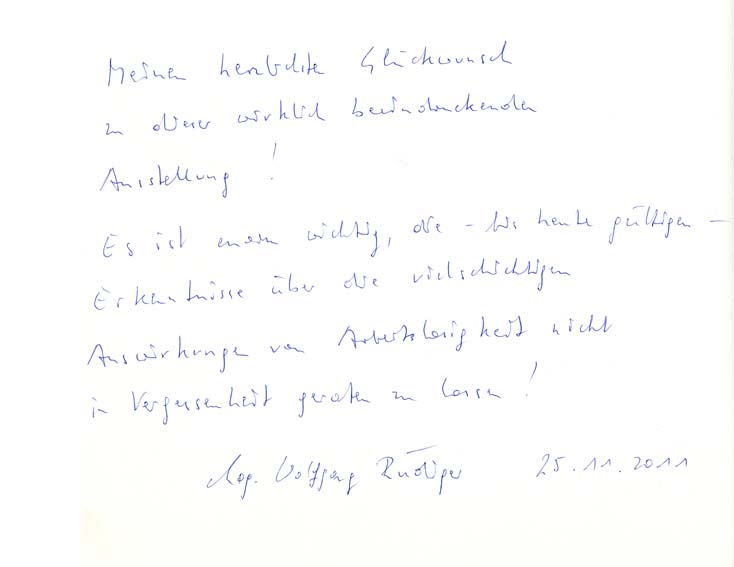 Meinen herzlichsten Glückwunsch
zu dieser wirklich beeindruckenden
Ausstellung!
Es ist enorm wichtig, die – bis heute gültigen –
Erkenntnisse über die vielschichtigen
Auswirkungen von Arbeitslosigkeit nicht
in Vergessenheit geraten zu lassen!
Mag. Wolfgang Rüdiger 25.11.2011